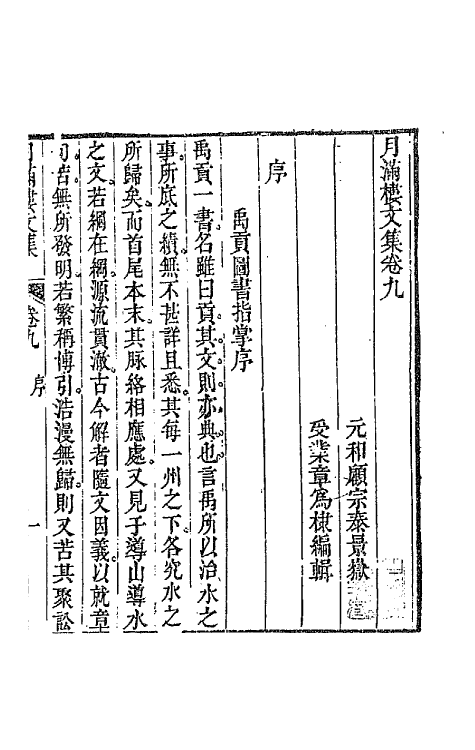 月滿樓文集卷九
元和顧宗泰景嶽
受業章爲棣編輯
序
禹貢圖書指掌序
禹貢一書名雖曰貢其文則亦典也言禹所以治水之
事所底之績無不甚詳且悉其每一州之下各究水之
所歸矣而首尾本末其脉絡相應處又見于導山導水
之文若網在綱源流貫澈古今解者隨文因義以就章
句苦無所發明若繁稱博引浩漫無歸則又苦其聚訟
月滿樓文集
卷九
序
一